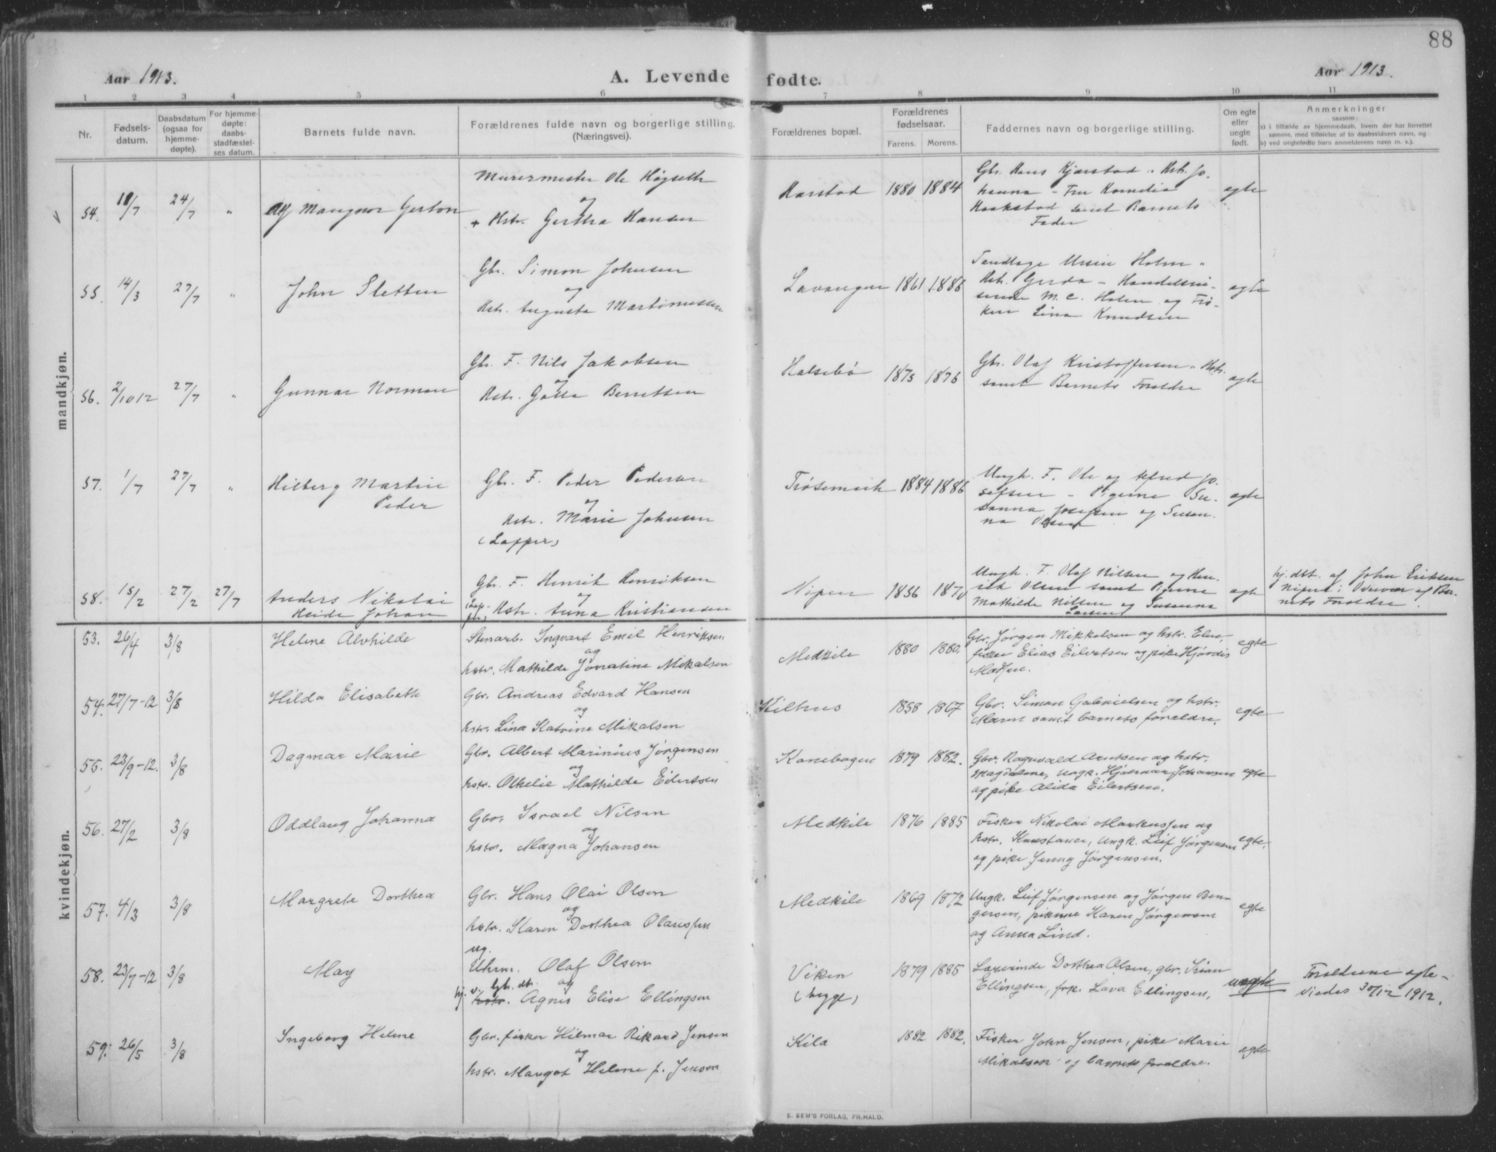 88
Aar 1913.
A. Levende fødte.
Aar 1913.
1 2 3 4 5 6 7 8 9 10 11
Nr.
Fødsels-
datum.
Daabsdatum
(ogsaa for
hjemme-
døpte).
For hjemme-
døpte:
daabs-
stadfæstel-
ses datum.
Barnets fulde navn.
Forældrenes fulde navn og borgerlige stilling.
(Næringsvei).
Forældrenes bopæl.
Forældrenes
fødselsaar.
Farens. Morens.
Faddernes navn og borgerlige stilling.
Om egte
eller
uegte
født.
Anmerkninger
saasom:
a) i tilfælde av hjemmedaab, hvem der har forrettet
samme, med tilføielse af to daabsvidners navn, og
b) ved uegtefødte barn anmelderens navn m. v.).
mandkjøn.
54. 18/7 24/7 "
Alf Mangnor Gerton
Murermester Ole Høgseth
og
+ Hstr. Gertha Hansen
Harstad 1880 1884
Gbr. Hans Kjærstad - Hst. Jo-
hanna - Fru Kornelia
Haakstad samt Barnets
Fader
egte
55. 14/3 27/7 "
John Sletten
Gbr. Simon Johnsen
og
Hstr. Augusta Martinussen
Lavangen 1861 1886
Tandlæge Ursin Holm -
Hst. Gerda - Handelsrei-
sende M. C. Holm og Frø-
ken Lina Knudsen
egte
56. 2/10 12 27/7 "
Gunnar Norman
Gbr. F. Nils Jakobsen
og
Hstr. Gølla Berretsen
Halsebø 1873 1876
Gbr. Olaf Kristoffersen - Hstr.
samt Barnets Forældre
egte
57. 1/7 27/7 "
Hilberg Martin
Peder
Gbr. F. Peder Pedersen
og
Hstr. Marie Johnsen
(Lapper)
1884 1886
Ungk. F. Ole og Alfred Jo-
sefsen - Pigerne Su-
sanna Josefsen og Susan-
na Olsen
egte
58. 15/2 27/2 27/7
Anders Nikolai
Heide Johan
Gbr. F. Henrik Henriksen
og
Hstr. Anna Kristiansen
Nipen 1856 1870
Ungk. F. Olaf Nilsen og Hen-
rik Olsen samt Pigerne
Mathilde Nilsen og Susanna
Larsen
egte
hj.dbt. af John Eriksen
Nipen i Overvær af Bar-
nets Forældre
kvindekjøn.
53. 26/4 3/8
Helene Alvhilde
Stenarb. Ingvart Emil Henriksen
og
hstr. Mathilde Jonatine Mikalsen
Medkile 1880 1880.
Gbr. Jørgen Mikkelsen og hstr. Elen,
fisker Elias Eilertsen og pike Hjørdis
Madsen.
egte
54. 27/7-12 3/8
Hilda Elisabeth
Gbr. Andreas Edvard Hansen
og
hstr. Lina Katrine Mikalsen
Kilhus 1858 1867
Gbr. Simon Gabrielsen og hstr.
Maren samt barnets forældre,
egte
55. 23/9-12. 3/8
Dagmar Marie
Gbr. Albert Marinius Jørgensen
og
hstr. Othelie Mathilde Eilertsen
Kanebogen 1879 1882.
Gbr. Ragnvald Arntsen og hstr.
Magdalene, ungk. Hjalmar Johansen
og pike Alida Eilertsen.
egte
56. 27/2 3/8
Oddlaug Johanna
Gbr. Israel Nilsen
og
hstr. Magna Johansen
Medkile 1876 1885
Fisker Nikolai Markussen og
hstr. Konstance, ungk. Leif Jørgensen
og pike Jenny Jørgensen.
egte.
57. 4/3 3/8
Margrete Dorthea
Gbr. Hans Olai Olsen
og
hstr. Karen Dorthea Olaussen
Medkile 1869 1872
Ungk. Leif Jørgensen og Jørgen Ben-
gersen, pikerne Karen Jørgensen
og Anna Lind.
egte
58. 23/7-12 3/8
May
ug.
Uhrm. Olaf Olsen
og
hstr. Agnes Elise Ellingsen
Viken
(bygs) 1879 1885
Dorthea Olsen, gbr. Peder
Ellingsen, frk. Lava Ellingsen,
uegte
Forældrene egte-
viedes 30/12 1912.
59. 26/5 3/8
Ingeborg Helene
Gbr. fisker Hilmar Rikard Jensen
og
hstr. Margot Helene f. Jenson
Kila 1882 1882.
Fisker John Jensen, pike Marie
Mikalsen og barnets forældre.
egte
E. SEM'S FORLAG, FR.HALD.